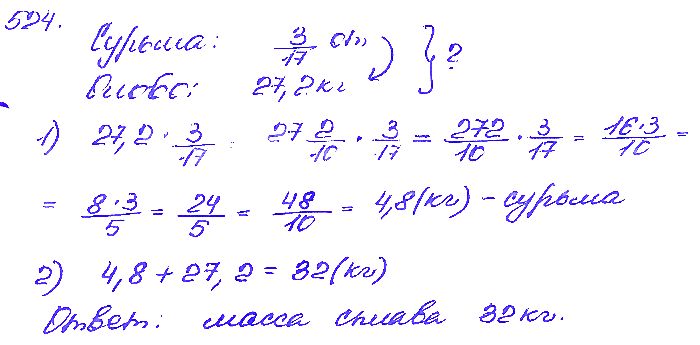 524.
Сурьма: 3/17 от } ?
Олово: 27,2 кг
1) 27,2 · 3/17 = 27 2/10 · 3/17 = 272/10 · 3/17 = 16·3/10 =
= 8·3/5 = 24/5 = 48/10 = 4,8 (кг) - сурьма
2) 4,8 + 27,2 = 32 (кг)
Ответ: масса сплава 32 кг.